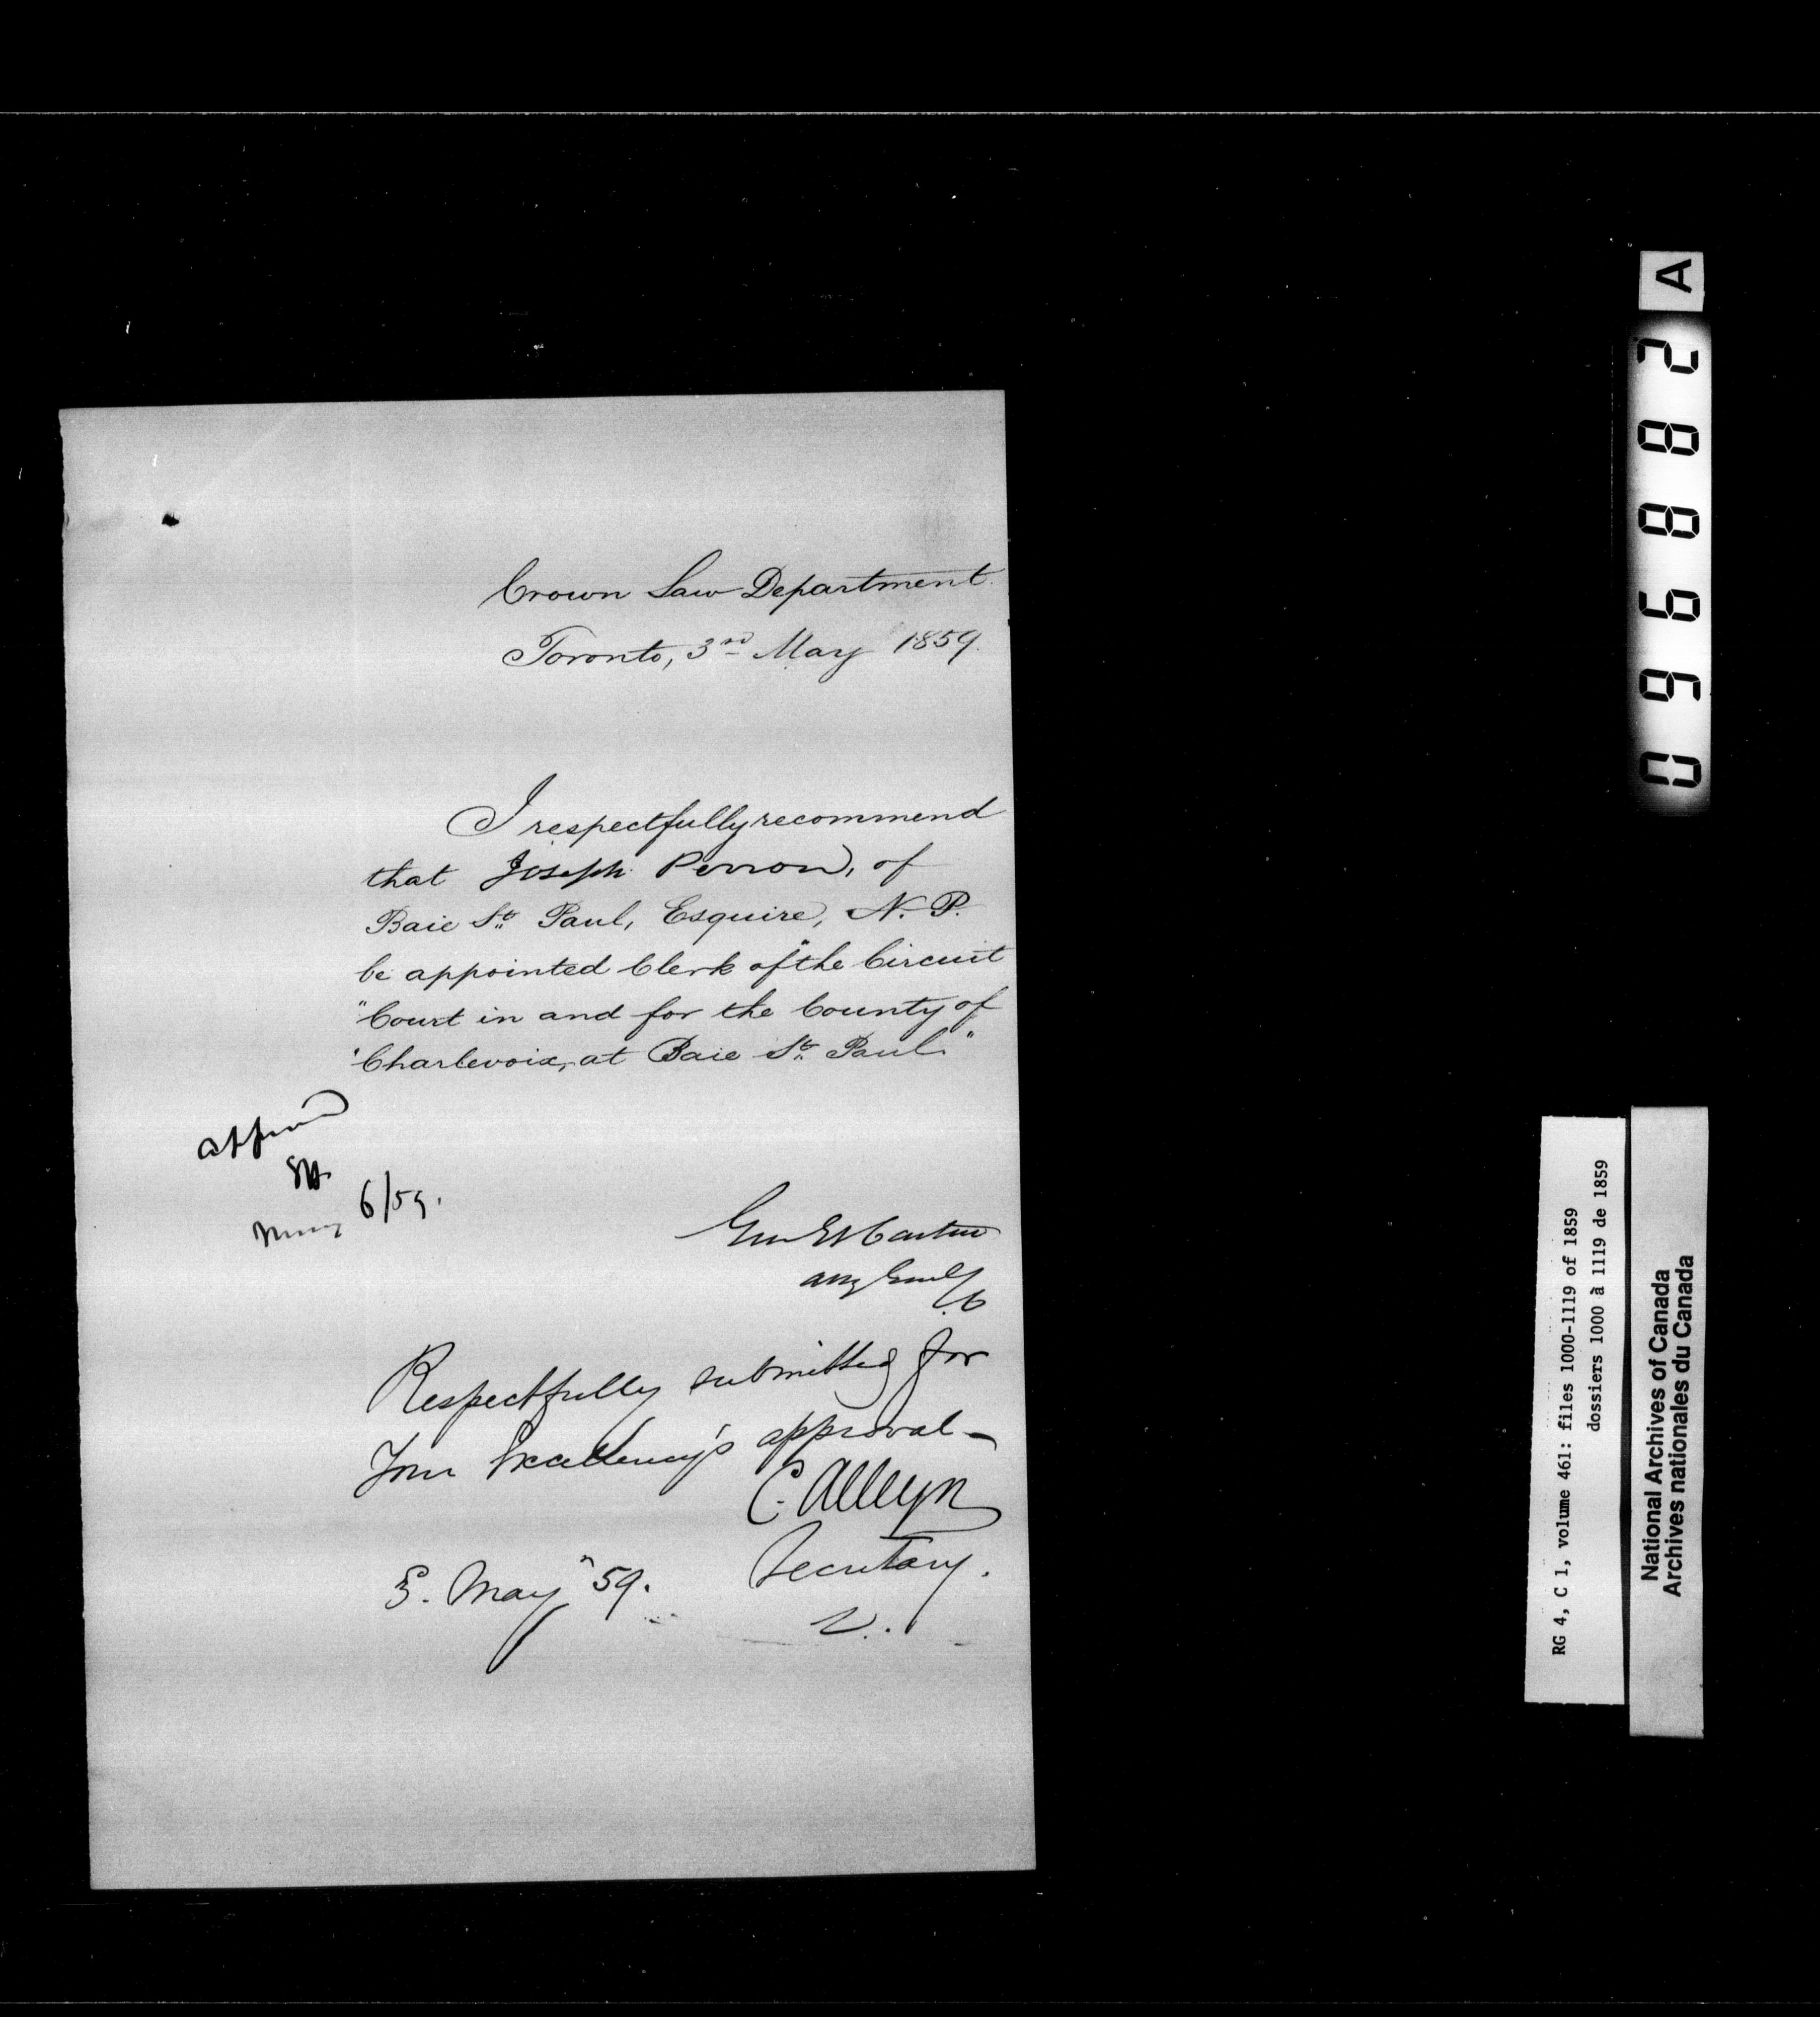 Crown Law Department
Toronto, 3rd May 1859.
I respectfully recommend
that Joseph Perron, of
Baie St. Paul, Esquire, N. P.
be appointed Clerk of "the Circuit
"Court in and for the County of
"Charlevoix, at Baie St. Paul."
Approved
May 6/59.
Geo Et Cartier
Atty Genl
Respectfully submitted for
Your Excellency's approval —
C. Alleyn
Secretary.
3. May "59.
A
096882
RG 4, C 1, volume 461: files 1000-1119 of 1859
dossiers 1000 à 1119 de 1859
National Archives of Canada
Archives nationales du Canada